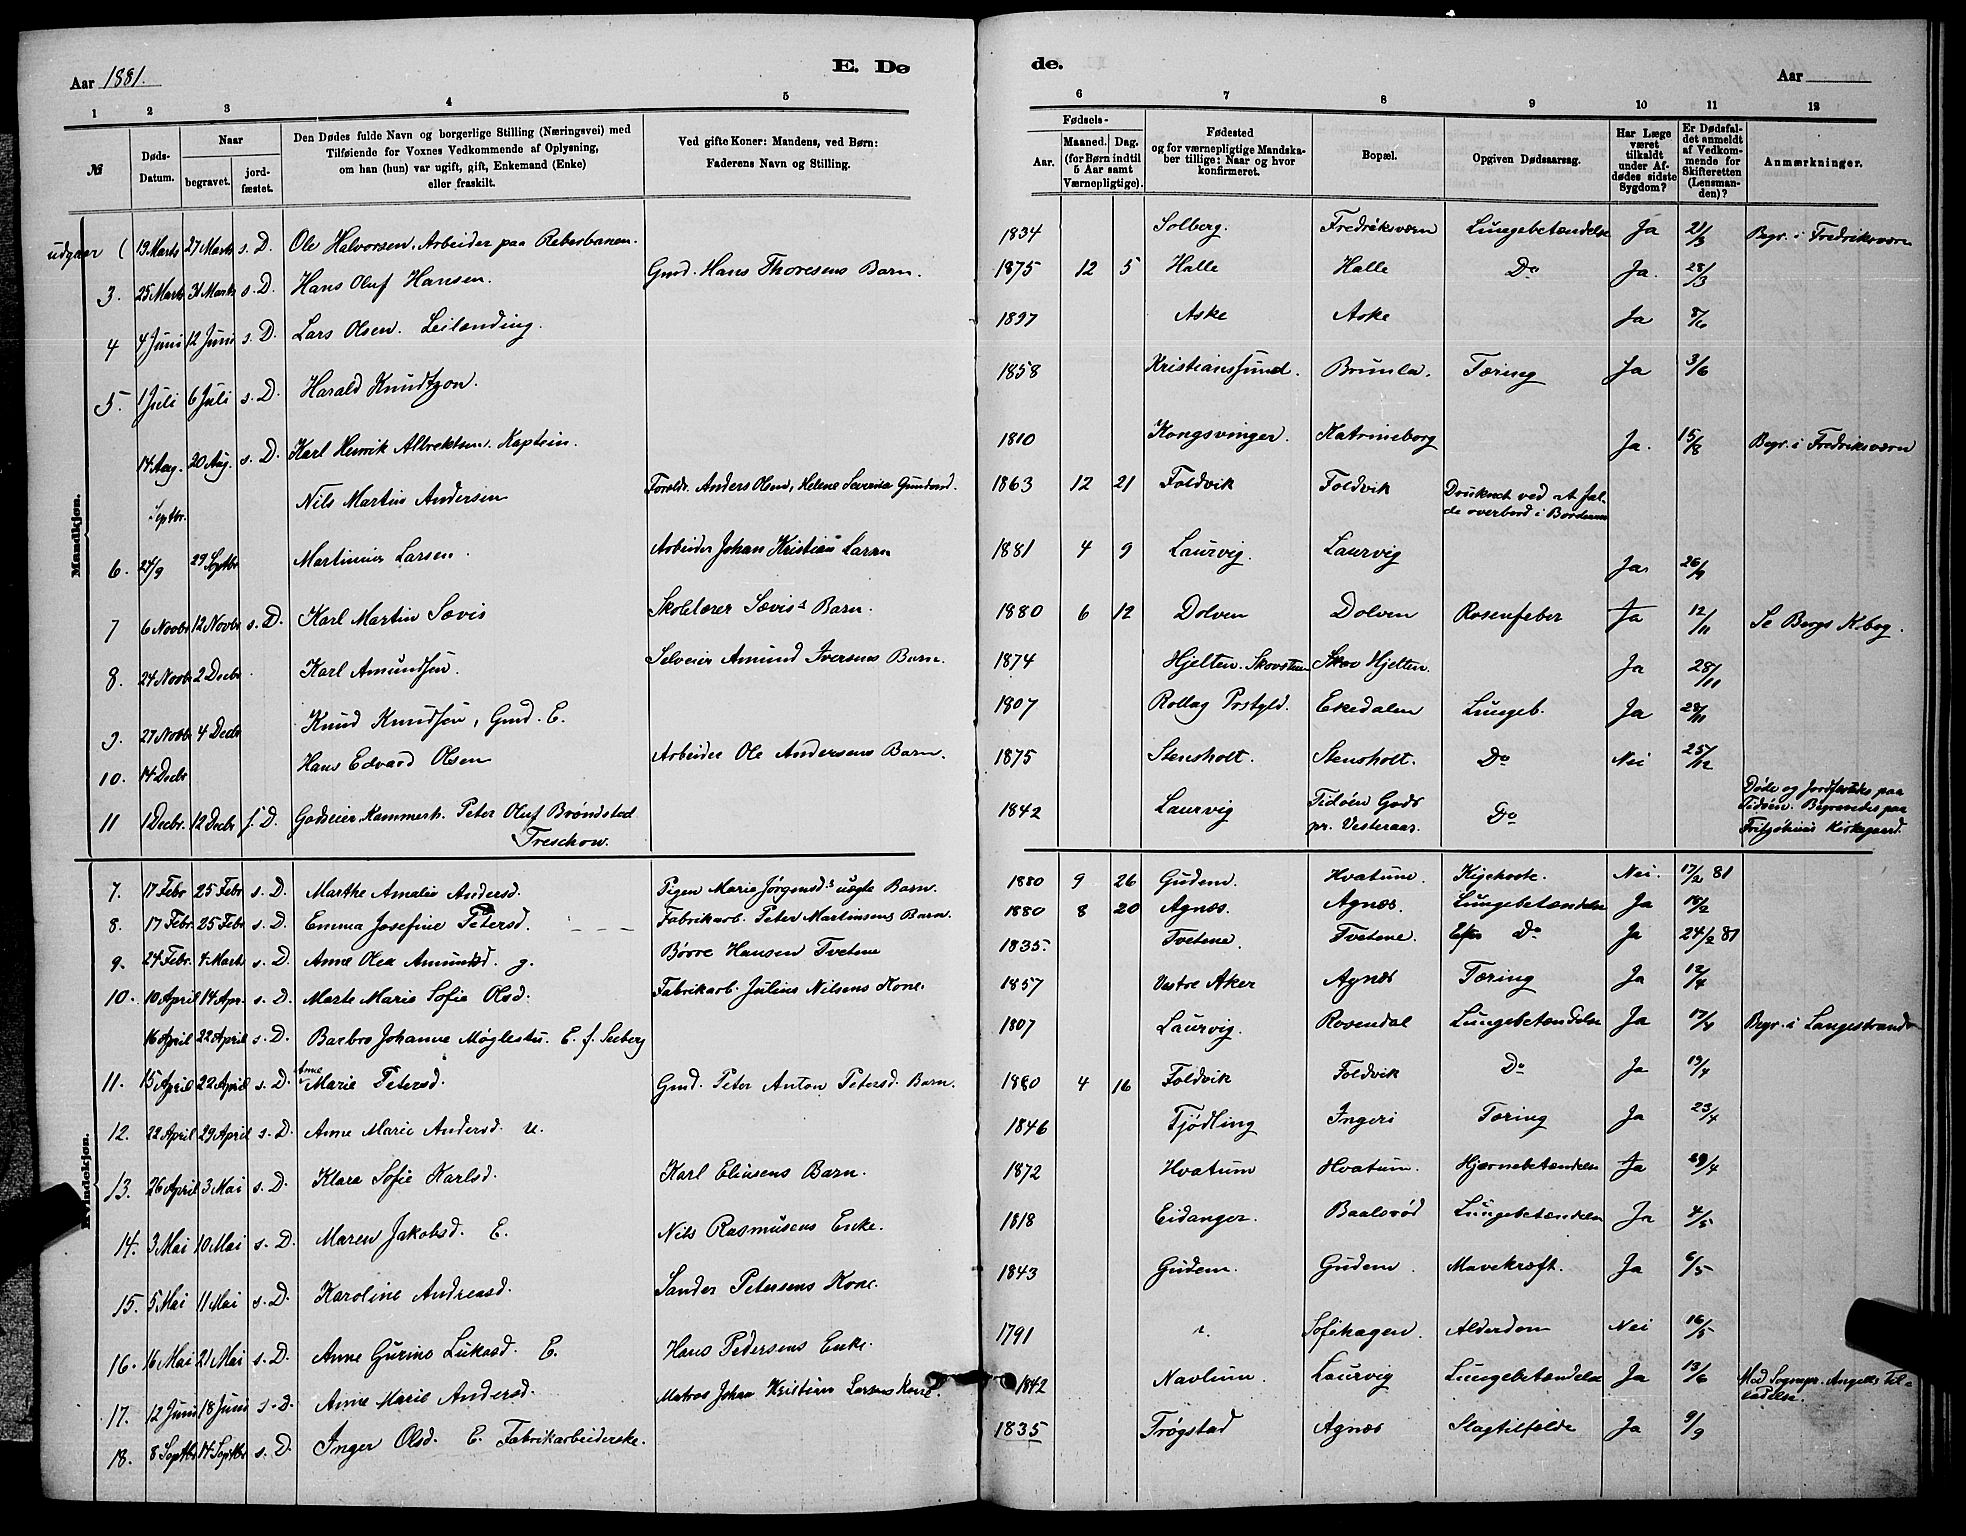 Aar 1881.
E. Dø
de.
Aar
1 2 3 4 5
6 7 8 9 10 11 12
№
Døds-Datum.
Naar
begravet.
jord-fæstet.
Den Dødes fulde Navn og borgerlige Stilling (Næringsvei) med
Tilføiende for Voxnes Vedkommende af Oplysning,
om han (hun) var ugift, gift, Enkemand (Enke)
eller fraskilt.
Ved gifte Koner: Mandens, ved Børn:
Faderens Navn og Stilling.
Fødsels-
Aar.
Maaned. Dag.
(for Børn indtil
5 Aar samt
Værnepligtige).
Fødested
og for værnepligtige Mandska-
ber tillige: Naar og hvor
konfirmeret.
Bopæl.
Opgiven Dødsaarsag.
Har Læge
været
tilkaldt
under Af-
dødes sidste
Sygdom?
Er Dødsfal-
det anmeldt
af Vedkom-
mende for
Skifteretten
(Lensman-
den)?
Anmærkninger.
Mandkjøn.
udgaar ( 19 Marts 27 Marts s. D. Ole Halvorsen. Arbeider paa Reberbanen. 1834 Solberg. Fredriksværn Lungebetændelse Ja 21/3 Begr. i Fredriksværn
3. 25 Marts 31 Marts s. D. Hans Oluf Hansen. Gmd. Hans Thoresens Barn. 1875 12 5 Halle Halle Do Ja. 28/3
4 4 Juni 12 Juni s. D. Lars Olsen. Leilending. 1897 Aske Aske Ja 8/6
5. 1 Juli 6 Juli s. D. Harald Knudtzon. 1858 Kristianssund. Brunla. Tæring Ja 3/6
14 Aug. 20 Aug. s. D. Karl Henrik Albrektsen. Kaptein. 1810 Kongsvinger. Katrineborg Ja. 15/8 Begr. i Fredriksværn
Septbr. Nils Martin Andersen Foreldr. Anders Olsen, Helene Severine Gundersd. 1863 12 21 Foldvik Foldvik Druknet ved at fal-
de overbord i
6. 24/9 29 Septbr Martinius Larsen. Arbeider Johan Kristian Larsen 1881 4 9 Laurvig. Laurvig Ja. 26/9
7 6 Novbr 12 Novbr s. D. Karl Martin Sævis Skolelærer Sævis's Barn. 1880 6 12 Dolven Dolven Rosenfeber Ja 12/11 Se Bergs K.bog.
8. 24 Novbr 2 Decbr Karl Amundsen. Selveier Amund Iversens Barn. 1874 Hjelten. Skov Hjelten. Ja 28/11
9. 27 Novbr 4 Decbr Knud Knudsen, Gmd. E. 1807 Rollag Prstgld. Ekedalen Lungeb. Ja 29/11
10. 14 Decbr Hans Edvard Olsen Arbeider Ole Andersens Barn. 1875 Stensholt. Stensholt. Do Nei 25/12
11 1 Decbr. 12 Decbr f. D. Godseier Kammerh. Peter Oluf Brøndsted
Treschow. 1842 Laurvig Tidøen Gods
pr. Vesteraas. Do Døde og Jordfæstedes paa
Tidøen. Begravedes paa
Fritzøhuus Kirkegaard.
Kvindekjøn.
7. 17 Febr 25 Febr s. D. Marthe Amalie Andersd. Pigen Marie Jørgensd's uægte Barn. 1880 9 26 Gudem. Hvatum. Kighoste. Nei. 17/2 81
8. 17 Febr. 25 Febr s. D. Emma Josefine Petersd. Fabrikarb. Peter Martinsens Barn. 1880 8 20 Agnæs. Agnæs. Lungebetændelse Ja 18/2
9. 24 Febr. 4 Marts s. D. Anne Olea Amundsd. g. Børre Hansen Tvetene 1835. Tvetene. Tvetene. Do Ja 24/2 81
10. 10 April 14 Apr. s. D. Marte Marie Sofie Olsd. Fabrikarb. Julius Nilsens Kone. 1857 Vestre Aker Agnæs Tæring Ja 12/4
16 April 22 April s. D. Barbro Johanne Møglestu. E. f. Seeberg 1807 Laurvig. Rosendal Lungebetændelse Ja 17/4 Begr. i Langestrand
11. 15 April 22 April s. D. Anne Marie Petersd. Gmd. Peter Anton Petersd. Barn. 1880 4 16 Foldvik Foldvik Do Ja 19/4
12. 22 April 29 April s. D. Anne Marie Andersd. u. 1846 Tjødling Ingeri Tæring Ja 23/4
13. 26 April 3 Mai s. D. Klara Sofie Karlsd. Karl Eliasens Barn. 1872 Hvatum Hvatum. Hjernebetændelse Ja 29/4
14. 3 Mai 10 Mai s. D. Maren Jakobsd. E. Nils Rasmusens Enke. 1818 Eidanger. Baalsrød Lungebetændelse Ja 4/5
15. 5 Mai 11 Mai s. D. Karoline Andreasd. Sander Petersens Kone. 1843 Gudem. Gudem. Mavekræft. Ja 6/5
16. 16 Mai 21 Mai s. D. Anne Gurine Lukasd. E. Hans Pedersens Enke. 1791 Sofihagen. Alderdom Nei 16/5
17. 12 Juni 18 Juni s. D. Anne Marie Andersd. Matros Johan Kristian Larsens Kone. 1842 Navlum. Laurvig Lungebetændelse Ja 13/6 Med Sognepr. Angells Til-
ladelse.
18. 8 Septbr 14 Septbr s. D. Inger Olsd. E. Fabrikarbeiderske. 1835 Trøgstad Agnæs Slagtilfelde Ja 9/9